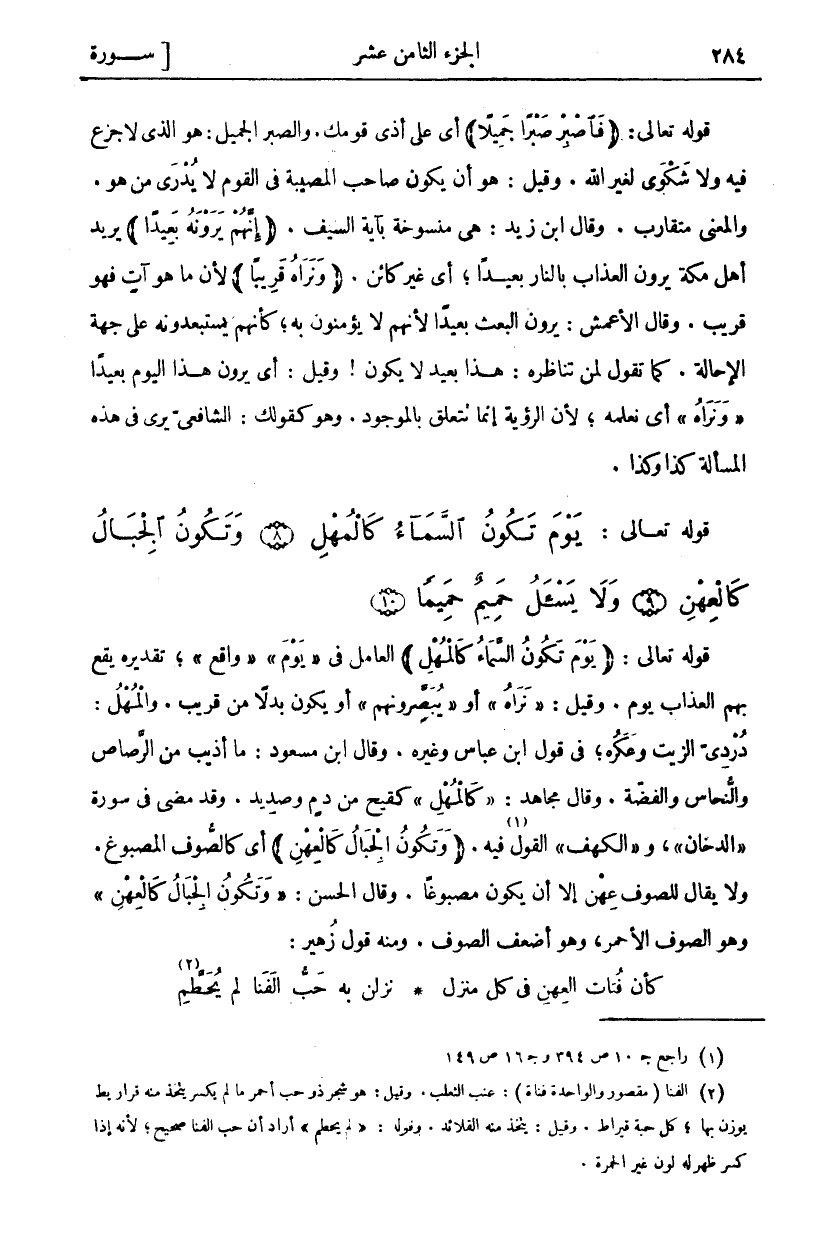 ٢٨٤ الجزء الثامن عشر [ ســـورة
قوله تعالى: ﴿ فَٱصْبِرْ صَبْرًا جَمِيلًا﴾ أى على أذى قومك. والصبر الجميل: هو الذى لا جزع
فيه ولا شَكْوَى لغير الله . وقيل : هو أن يكون صاحب المصيبة فى القوم لا يُدْرَى من هو .
والمعنى متقارب . وقال ابن زيد : هى منسوخة بآية السيف . ﴿ إِنَّهُمْ يَرَوْنَهُ بَعِيدًا ﴾ يريد
أهل مكة يرون العذاب بالنار بعيــدًا ؛ أى غير كائن . ﴿ وَنَرَاهُ قَرِيبًا﴾ لأن ما هو آتٍ فهو
قريب . وقال الأعمش : يرون البعث بعيدًا لأنهم لا يؤمنون به ؛ كأنهم يستبعدونه على جهة
الإحالة . كما تقول لمن تناظره : هــذا بعيد لا يكون ! وقيل : أى يرون هــذا اليوم بعيدًا
« وَنَرَاهُ » أى نعلمه ؛ لأن الرؤية إنما تتعلق بالموجود . وهو كقولك : الشافعىّ يرى فى هذه
المسألة كذا وكذا .
قوله تعــالى : يَوْمَ تَكُونُ ٱلسَّمَآءُ كَالْمُهْلِ ﴿٨﴾ وَتَكُونُ ٱلْجِبَــالُ
كَالْعِهْنِ ﴿٩﴾ وَلَا يَسْـَٔلُ حَمِيمٌ حَمِيمًا ﴿١٠﴾
قوله تعالى : ﴿ يَوْمَ تَكُونُ السَّمَاءُ كَالْمُهْلِ ﴾ العامل فى « يَوْمَ » « واقع » ؛ تقديره يقع
بهم العذاب يوم . وقيل : « نَرَاهُ » أو « يُبَصَّرونهم » أو يكون بدلًا من قريب . والْمُهْلُ :
دُرْدِىّ الزيت وعَكَرُه ؛ فى قول ابن عباس وغيره . وقال ابن مسعود : ما أذيب من الرَّصاص
والنُّحاس والفضّة . وقال مجاهد : « كَالْمُهْلِ » كقيح من دمٍ وصديد . وقد مضى فى سورة
«الدخان»، و «الكهف» القول فيه(١). ﴿ وَتَكُونُ الْجِبَالُ كَالْعِهْنِ ﴾ أى كالصُّوف المصبوغ.
ولا يقال للصوف عِهْن إلا أن يكون مصبوغًا . وقال الحسن : « وَتَكُونُ الْجِبَالُ كَالْعِهْنِ »
وهو الصوف الأحمر، وهو أضعف الصوف . ومنه قول زُهير :
كأن فُتات العهن فى كل منزل * نزلن به حَبُّ الفَنَا لم يُحَطَّمِ(٢)
(١) راجع جـ ١٠ ص ٣٩٤ و جـ ١٦ ص ١٤٩
(٢) الفنا ( مقصور والواحدة فناة ) : عنب الثعلب . وقيل : هو شجر ذو حب أحمر ما لم يكسر يتخذ منه قراريط
يوزن بها ؛ كل حبة قيراط . وقيل : يتخذ منه القلائد . وقوله : « لم يحطم » أراد أن حب الفنا صحيح ؛ لأنه إذا
كسر ظهر له لون غير الحمرة .